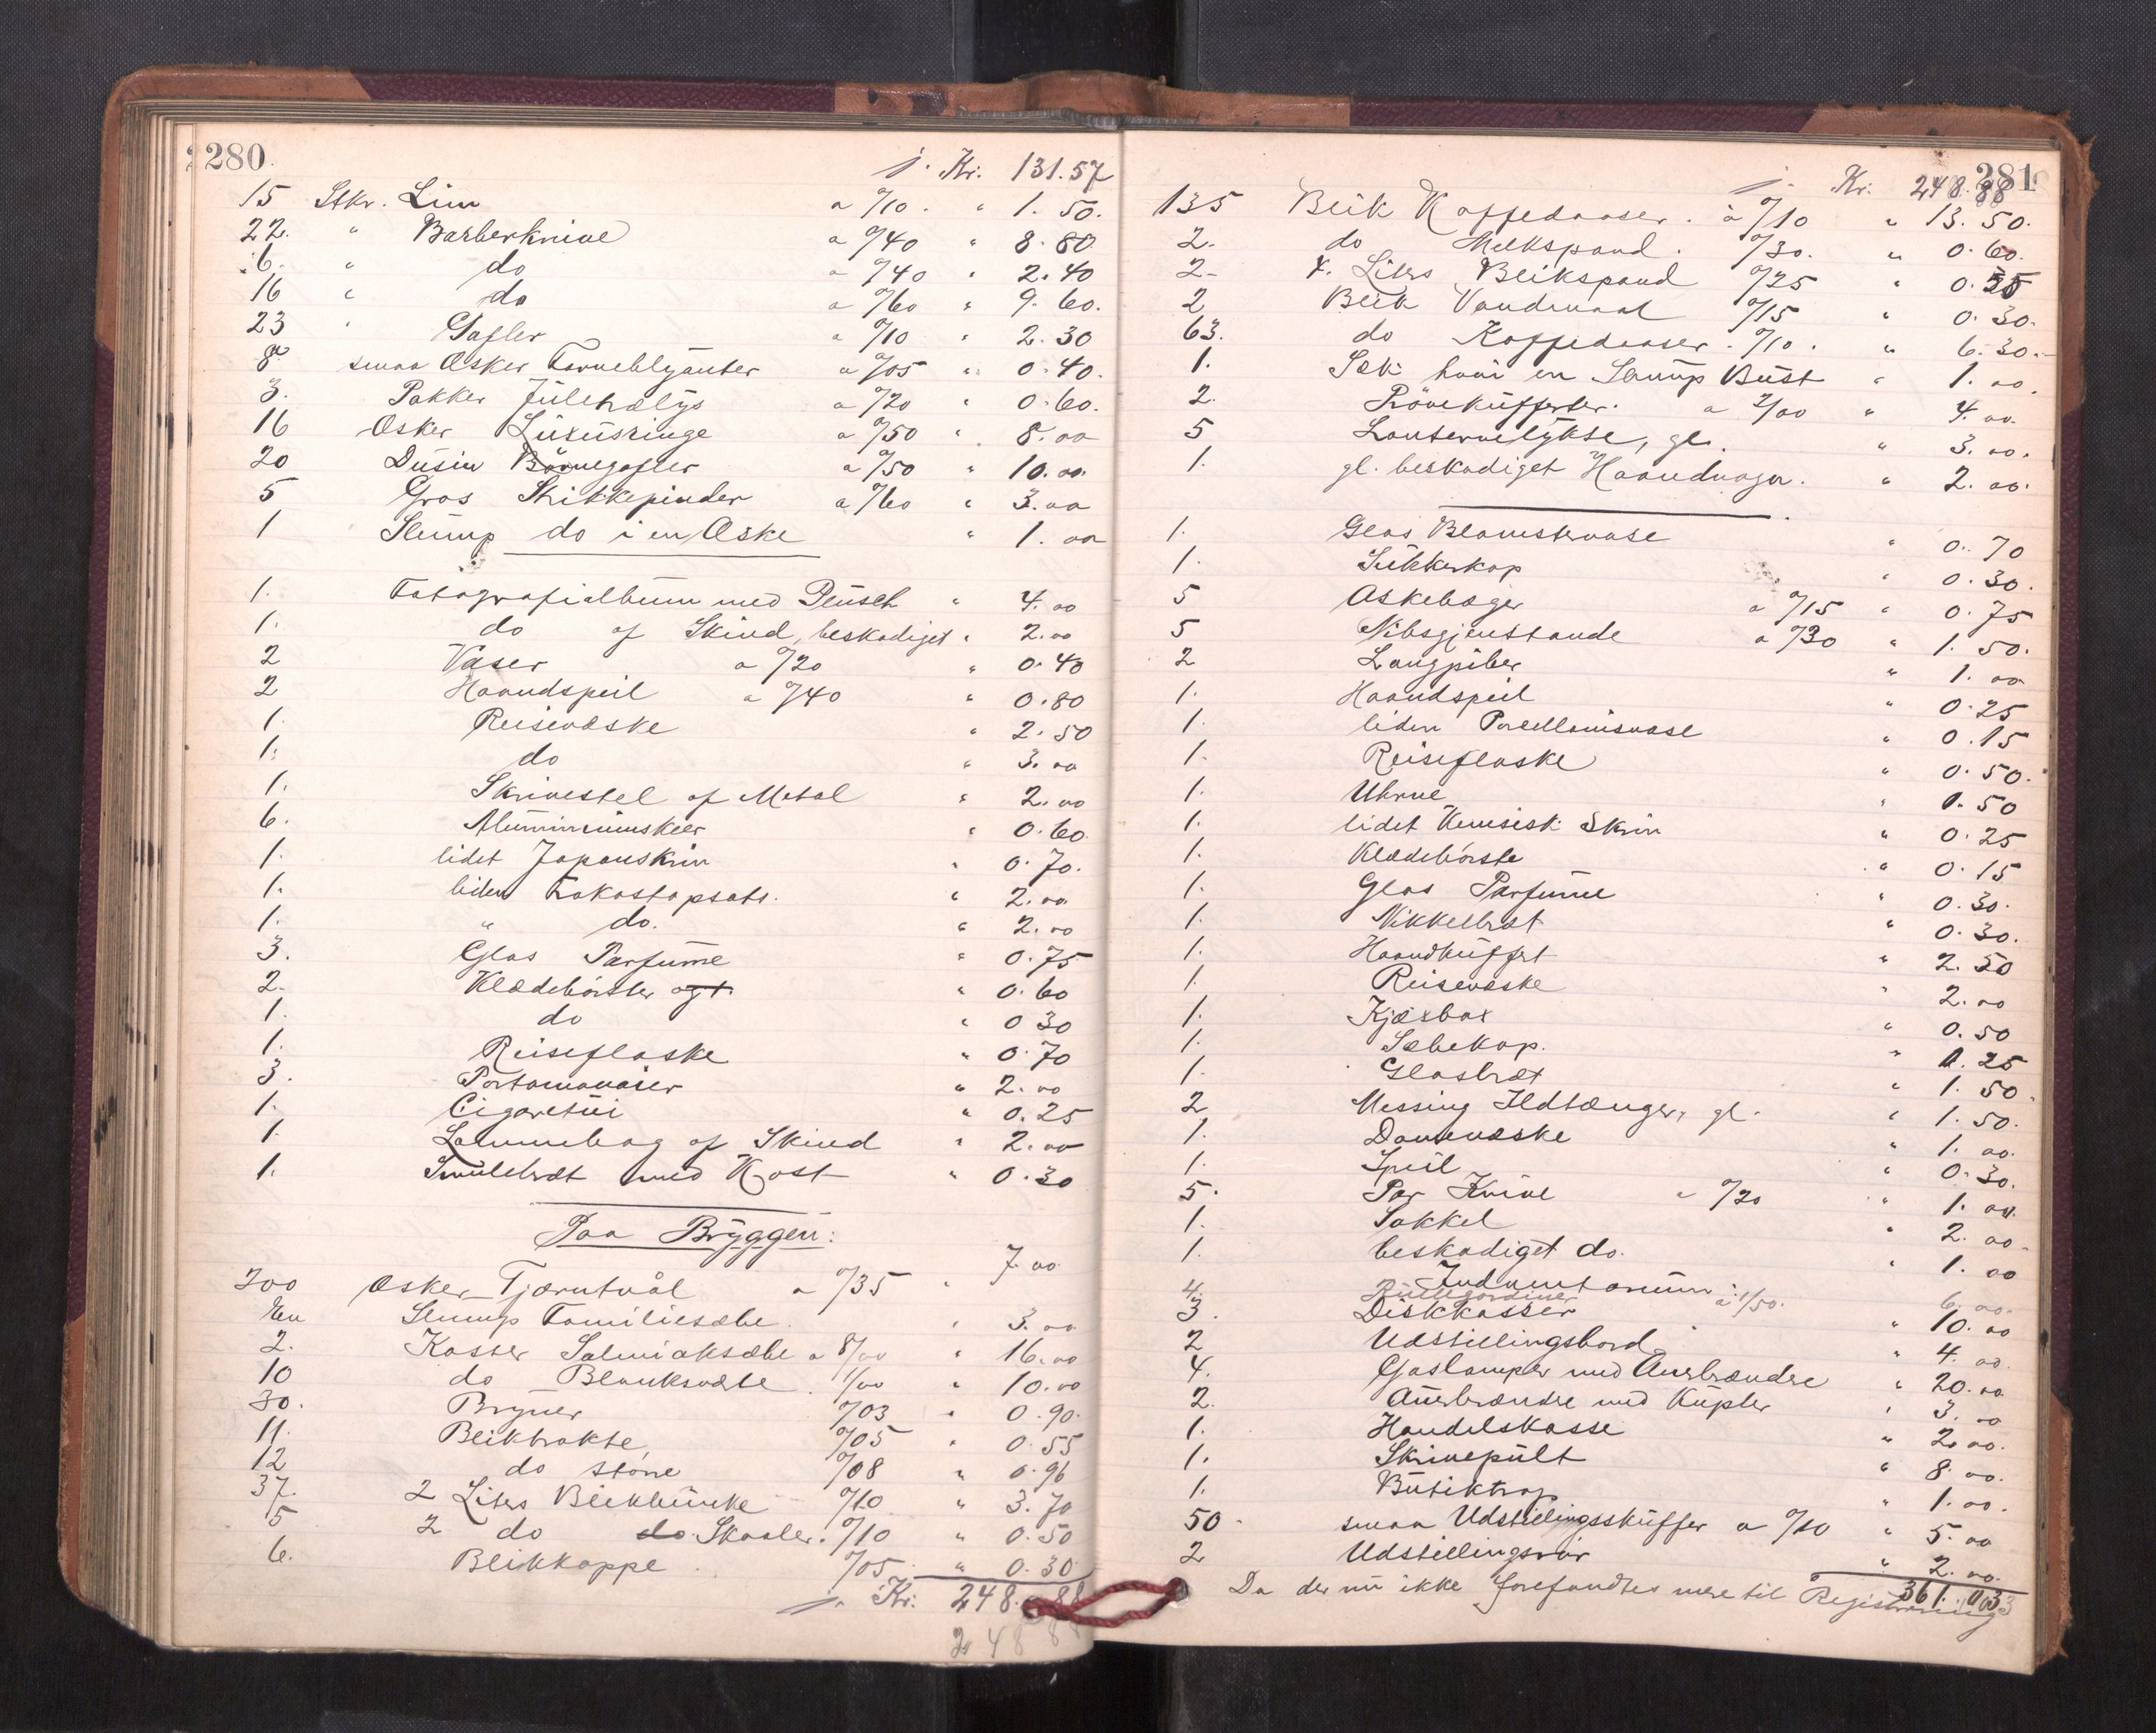 280.
j. Kr. 131.57
15 Stkr. Lim a 0/10. " 1.50.
22. " Barberknive a 0/40 " 8.80
6. " do a 0/40 " 2.40
16 " do a 0/60 " 9.60.
23 " Gafler a 0/10 " 2.30
8 smaa Æsker a 0/05 " 0.40.
3. Pakker Juletrælys a 0/20 " 0.60.
16 Æsker Luxusringe a 0/50 " 8.00
20 Dusin Börnegafler a 0/50 " 10.00.
5 Gros Strikkepinder a 0/60 " 3.00
1 Slump do i en Æske " 1.00
1. Fotografialbum med Plusch " 4.00
1. do af Skind, beskadiget " 2.00
2 Vaser a 0/20 " 0.40
2 Haandspeil a 0/40 " 0.80
1. Reisevæske " 2.50
1. do " 3.00
1. Skrivestel af Metal " 2.00
6. Aluminiumskeer " 0.60.
1. lidet Japanskrin " 0.70.
1. liden Frokostopsats. " 2.00
1. " do. " 2.00
3. Glas Parfume " 0.75
2. Klædebörster " 0.60
1. do " 0 30
1. Reiseflaske " 0.70
3. Portemonaier " 2.00
1. Cigaretui " 0.25
1. Lommebog af Skind " 2.00
1. Smulebræt med Kost " 0.30
Paa Bryggen:
200 Æsker Tjærutvål a 0/35 " 7.00
En Slump Familiesæbe. " 3.00
2. Kasser Salmiaksæbe a 8/00 " 16.00
10 do Blanksværte 1/00 " 10.00
30. Bryner 0/03 " 0.90.
11. Bliktrakte, 0/05 " 0.55
12 do större 0/08 " 0.96
37. 2 Liters Blikbunke 0/10 " 3.70
5 2 do do Skaaler. 0/10 " 0.50
6. Blikkoppe 0/05 " 0.30
j. Kr. 248.88
248 88
281
j. Kr. 248.88
135 Blik Kaffedaaser. à 0/10 " 13.50.
2. do Melkspand. 0/30. " 0.60.
2- Liters Blikspand 0/25 "
2 Blik Vandmaal 0/15 " 0.30.
63. do Kaffedaaser. 0/10. " 6.30.
1. Sæk hvori en Slump Bust " 1.00.
2. Prövekufferter. a 2/00 " 4.00.
5 Lanternelykte, gl. " 3.00.
1. gl. beskadiget Haandvogn. " 2.00.
1. Glas Blomstervase " 0.70
1. Sukkerkop " 0.30.
5 Askebæger a 0/15 " 0.75
5 Nibsgjenstande a 0/30 " 1.50.
2 Langpiber " 1.00
1. Haandspeil " 0.25
1. liden Porcellænsvase " 0.15
1. Reiseflaske " 0.50.
1. Uhrne " 1.50
1. lidet Kinesisk Skrin " 0.25
1. Klædebörste " 0.15
1. Glas Parfume " 0.30.
1. Nikkelbræt " 0.30.
1. Haandkuffert " 2.50
1. Reisevæske " 2.00
1. Kjæxbox " 0.50
1. Sæbekop. " 1.25
1. Glasbræt " 1.50.
2 Messing Ildtænger, gl. " 1.50.
1. Damevæske " 1.00.
1. Speil " 0.30.
5. Par Knive a 0/20 " 1.00.
1. Sakkel " 2.00.
1. beskadiget do. " 1.00
Indventarium
4. Rullegardiner à 1/50. 6.00.
3. Diskkasser " 10.00
2 Udstillingsbord. " 4.00.
4. Gaslamper med Auerbrændre " 20.00
2. Auerbrændre med Kupler " 3.00
1. Handelskasse " 2.00.
1. Skrivepult " 8.00.
1. Butiktrap " 1.00.
50. smaa Udstillingsskuffer a 0/10 " 5.00
2 Udstillingsrör " 2.00.
361.03
Da der nu ikke forefandtes mere til Registrering